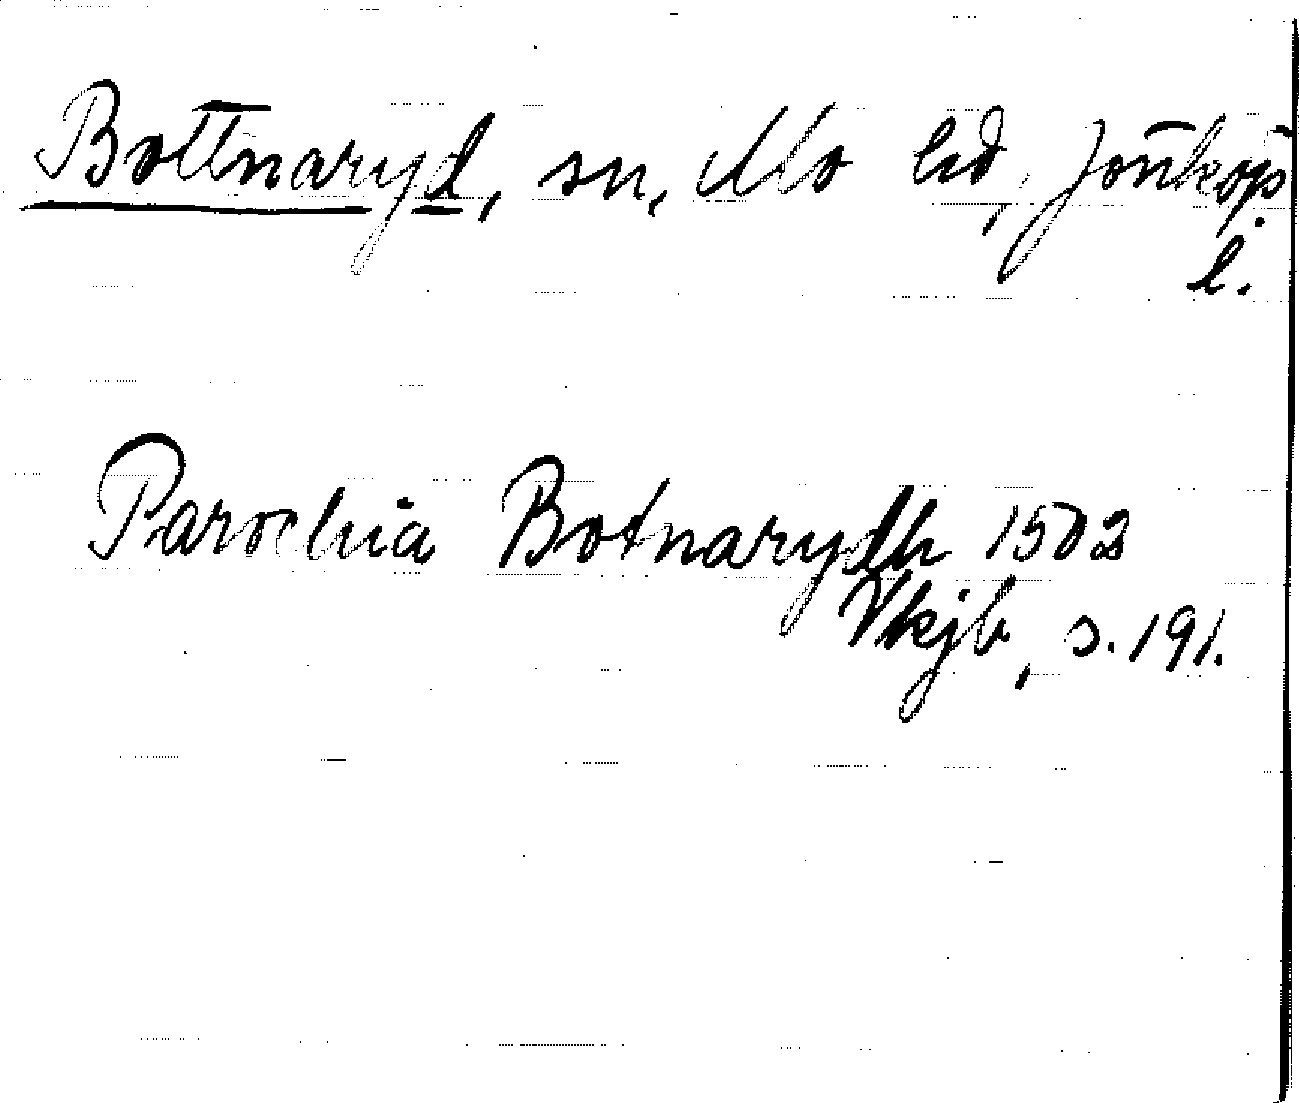 Bottnaryd, sn, Mo hd, Jönköp.
l.
Parochia Botnarydh 1502
Vkjb, s. 191.